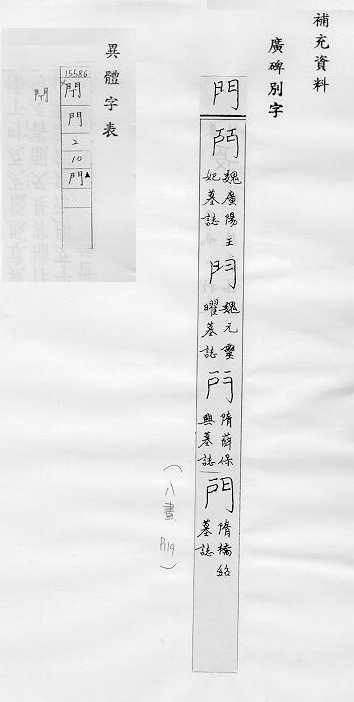 補充資料
廣碑別字
門
門
魏廣陽王
妃墓誌
門
魏元靈
曜墓誌
門
隋薛保
興墓誌
門
隋橋紹
墓誌
(八畫 P.119)
異體字表
15586
門
2
10
門▲